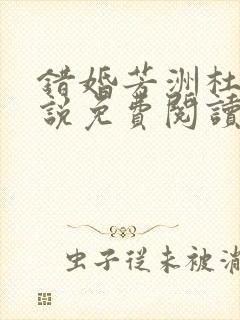 錯婚芳洲杜
說免費閱讀
虫子從未被消